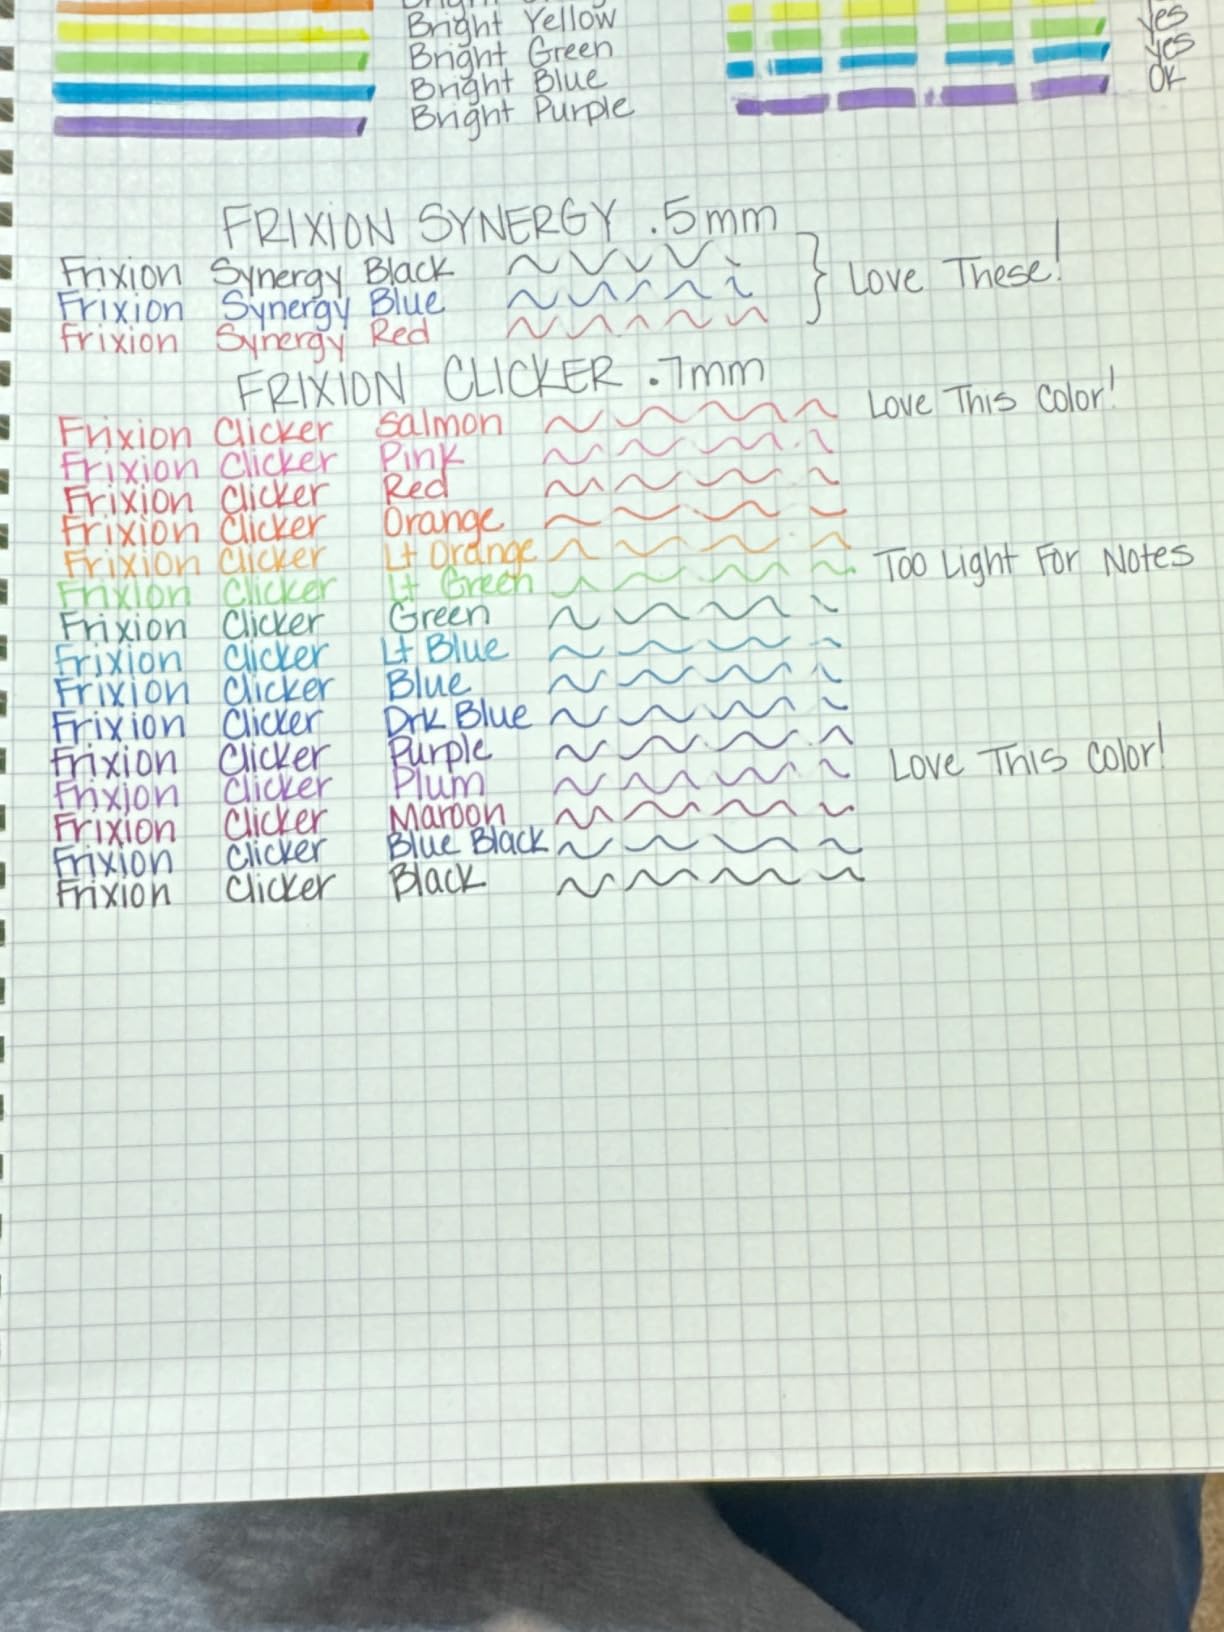 Bright Yellow
Bright Green yes
Bright Blue yes
Bright Purple OK
FRIXION SYNERGY .5mm
Frixion Synergy Black
Frixion Synergy Blue } Love These!
Frixion Synergy Red
FRIXION CLICKER .7mm
Frixion Clicker Salmon Love This Color!
Frixion Clicker Pink
Frixion Clicker Red
Frixion Clicker Orange
Frixion Clicker Lt Orange
Frixion Clicker Lt Green Too Light For Notes
Frixion Clicker Green
Frixion Clicker Lt Blue
Frixion Clicker Blue
Frixion Clicker Drk Blue
Frixion Clicker Purple
Frixion Clicker Plum Love This Color!
Frixion Clicker Maroon
Frixion Clicker Blue Black
Frixion Clicker Black